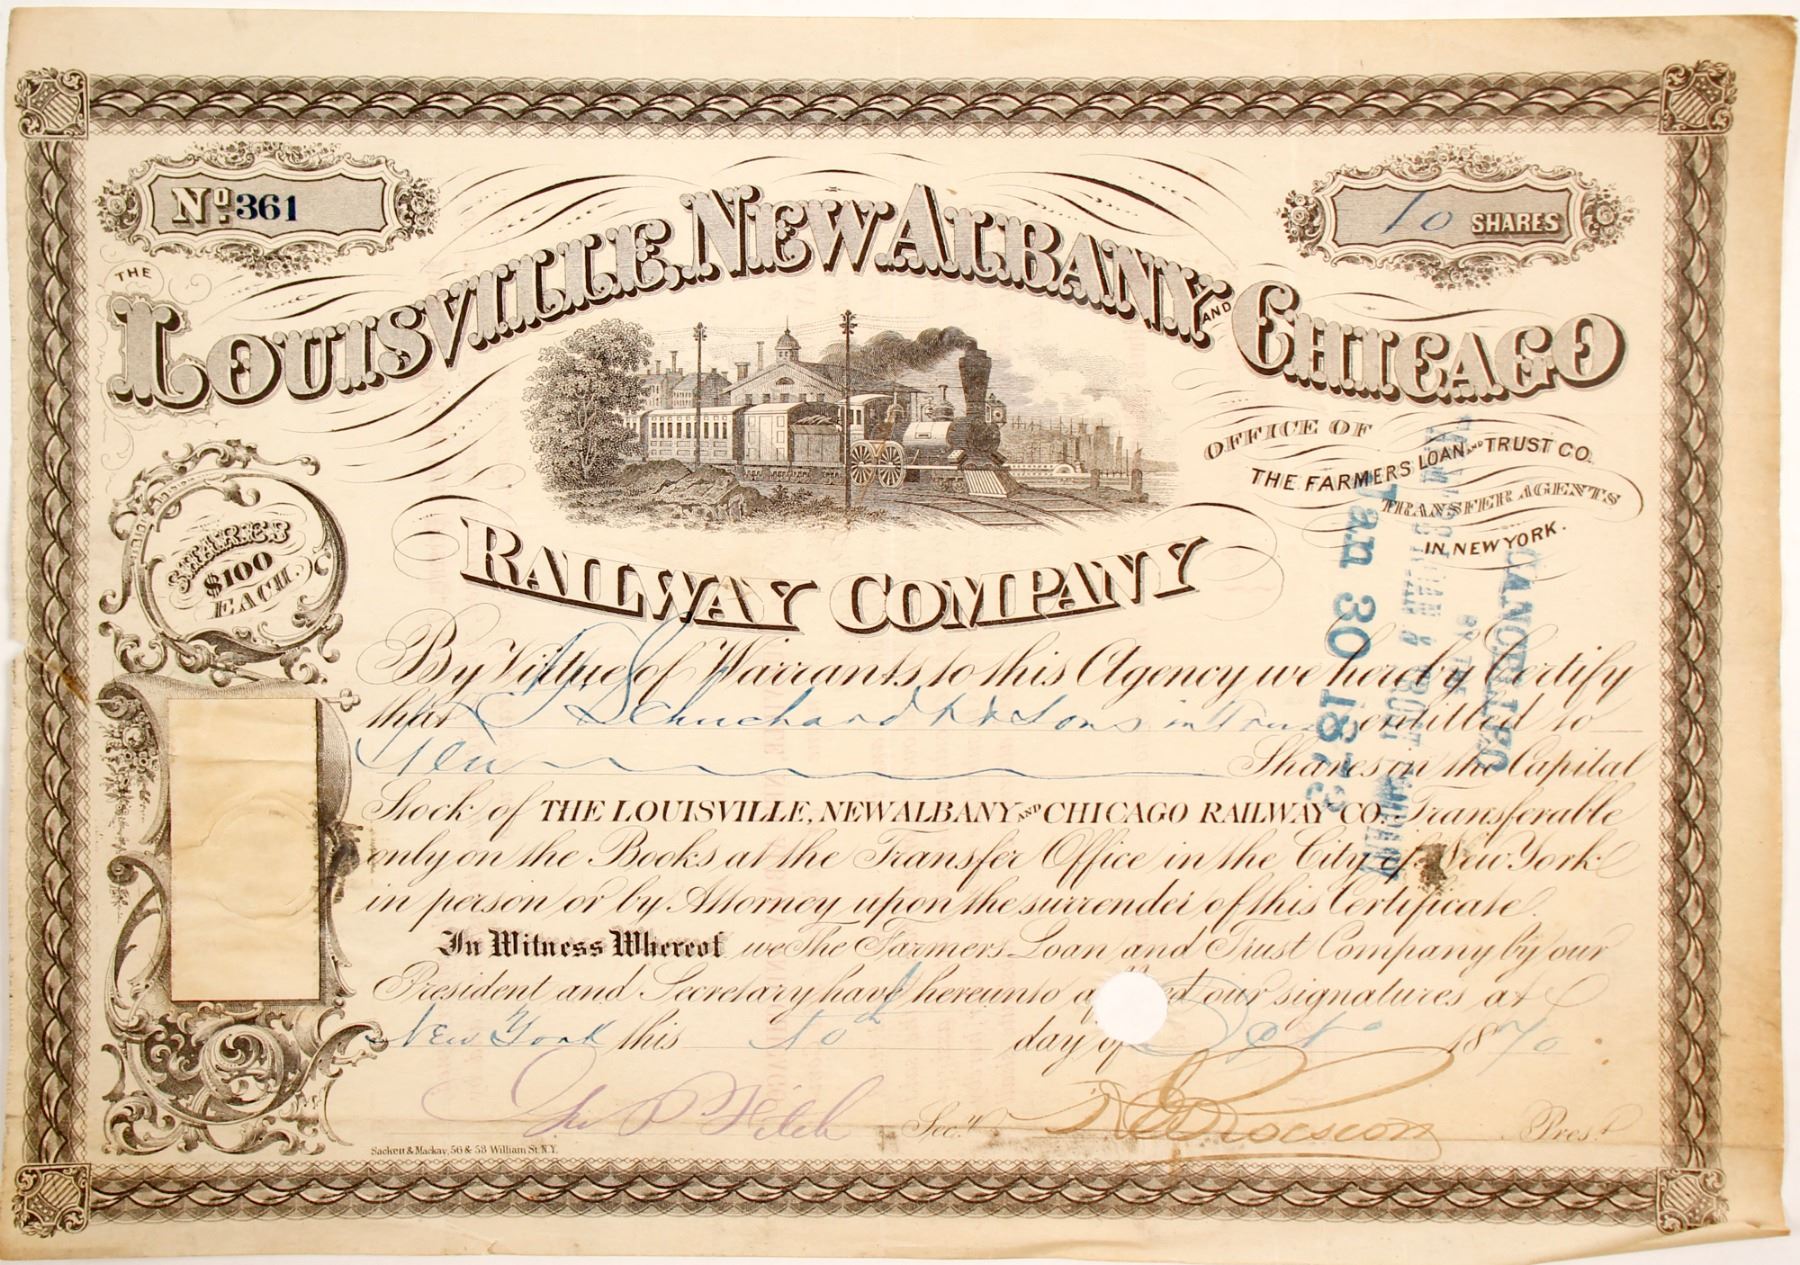 No. 361
10 SHARES
THE
LOUISVILLE, NEW ALBANY AND CHICAGO
RAILWAY COMPANY
OFFICE OF
THE FARMERS LOAN AND TRUST CO.
TRANSFER AGENTS
IN NEW YORK.
SHARES
$100
EACH.
By Virtue of Warrants to this Agency we hereby Certify
that F Schuchardt & Sons in Trust entitled to
Ten Shares in the Capital
Stock of THE LOUISVILLE, NEW ALBANY AND CHICAGO RAILWAY CO. Transferable
only on the Books at the Transfer Office in the City of New York
in person or by Attorney upon the surrender of this Certificate.
In Witness Whereof we The Farmers Loan and Trust Company by our
President and Secretary have hereunto our signatures at
New York this day of 1870
Sec.y
Pres.t
Sackett & Mackay, 56 & 58 William St. N.Y.
CANCELLED
BY THE
Jan 30 1873